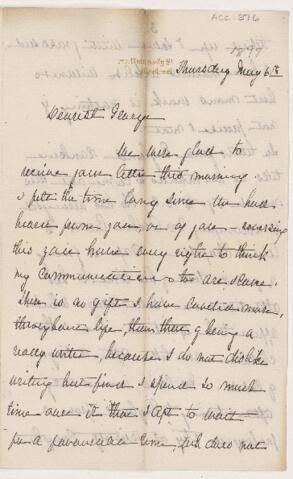 ACC. 8716
1897
Thursday May 6th
Dearest George
We were glad to
receive your letter this morning
I felt the time long since we had
heard from you, or of you - knowing
this you have every right to think
my communications too are scarce.
There is no gift I have coveted more,
through out life, than that of being a
ready writer, because I do not dislike
writing but find I spend so much
time over it that I apt to wait
for a favourable time, which does not